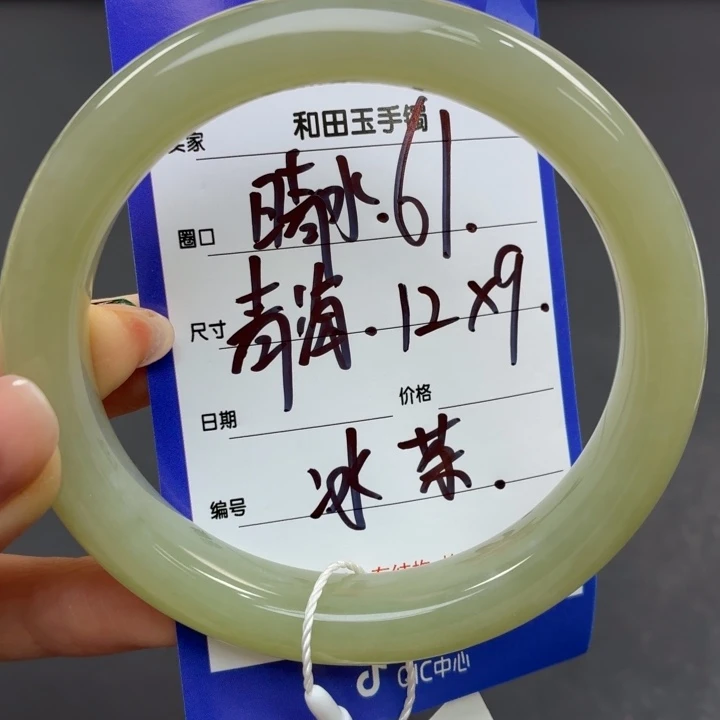 和田玉手镯
卖家
晴水.61.
圈口
尺寸 青海.12x9.
日期 价格
冰茶.
编号
QIC中心